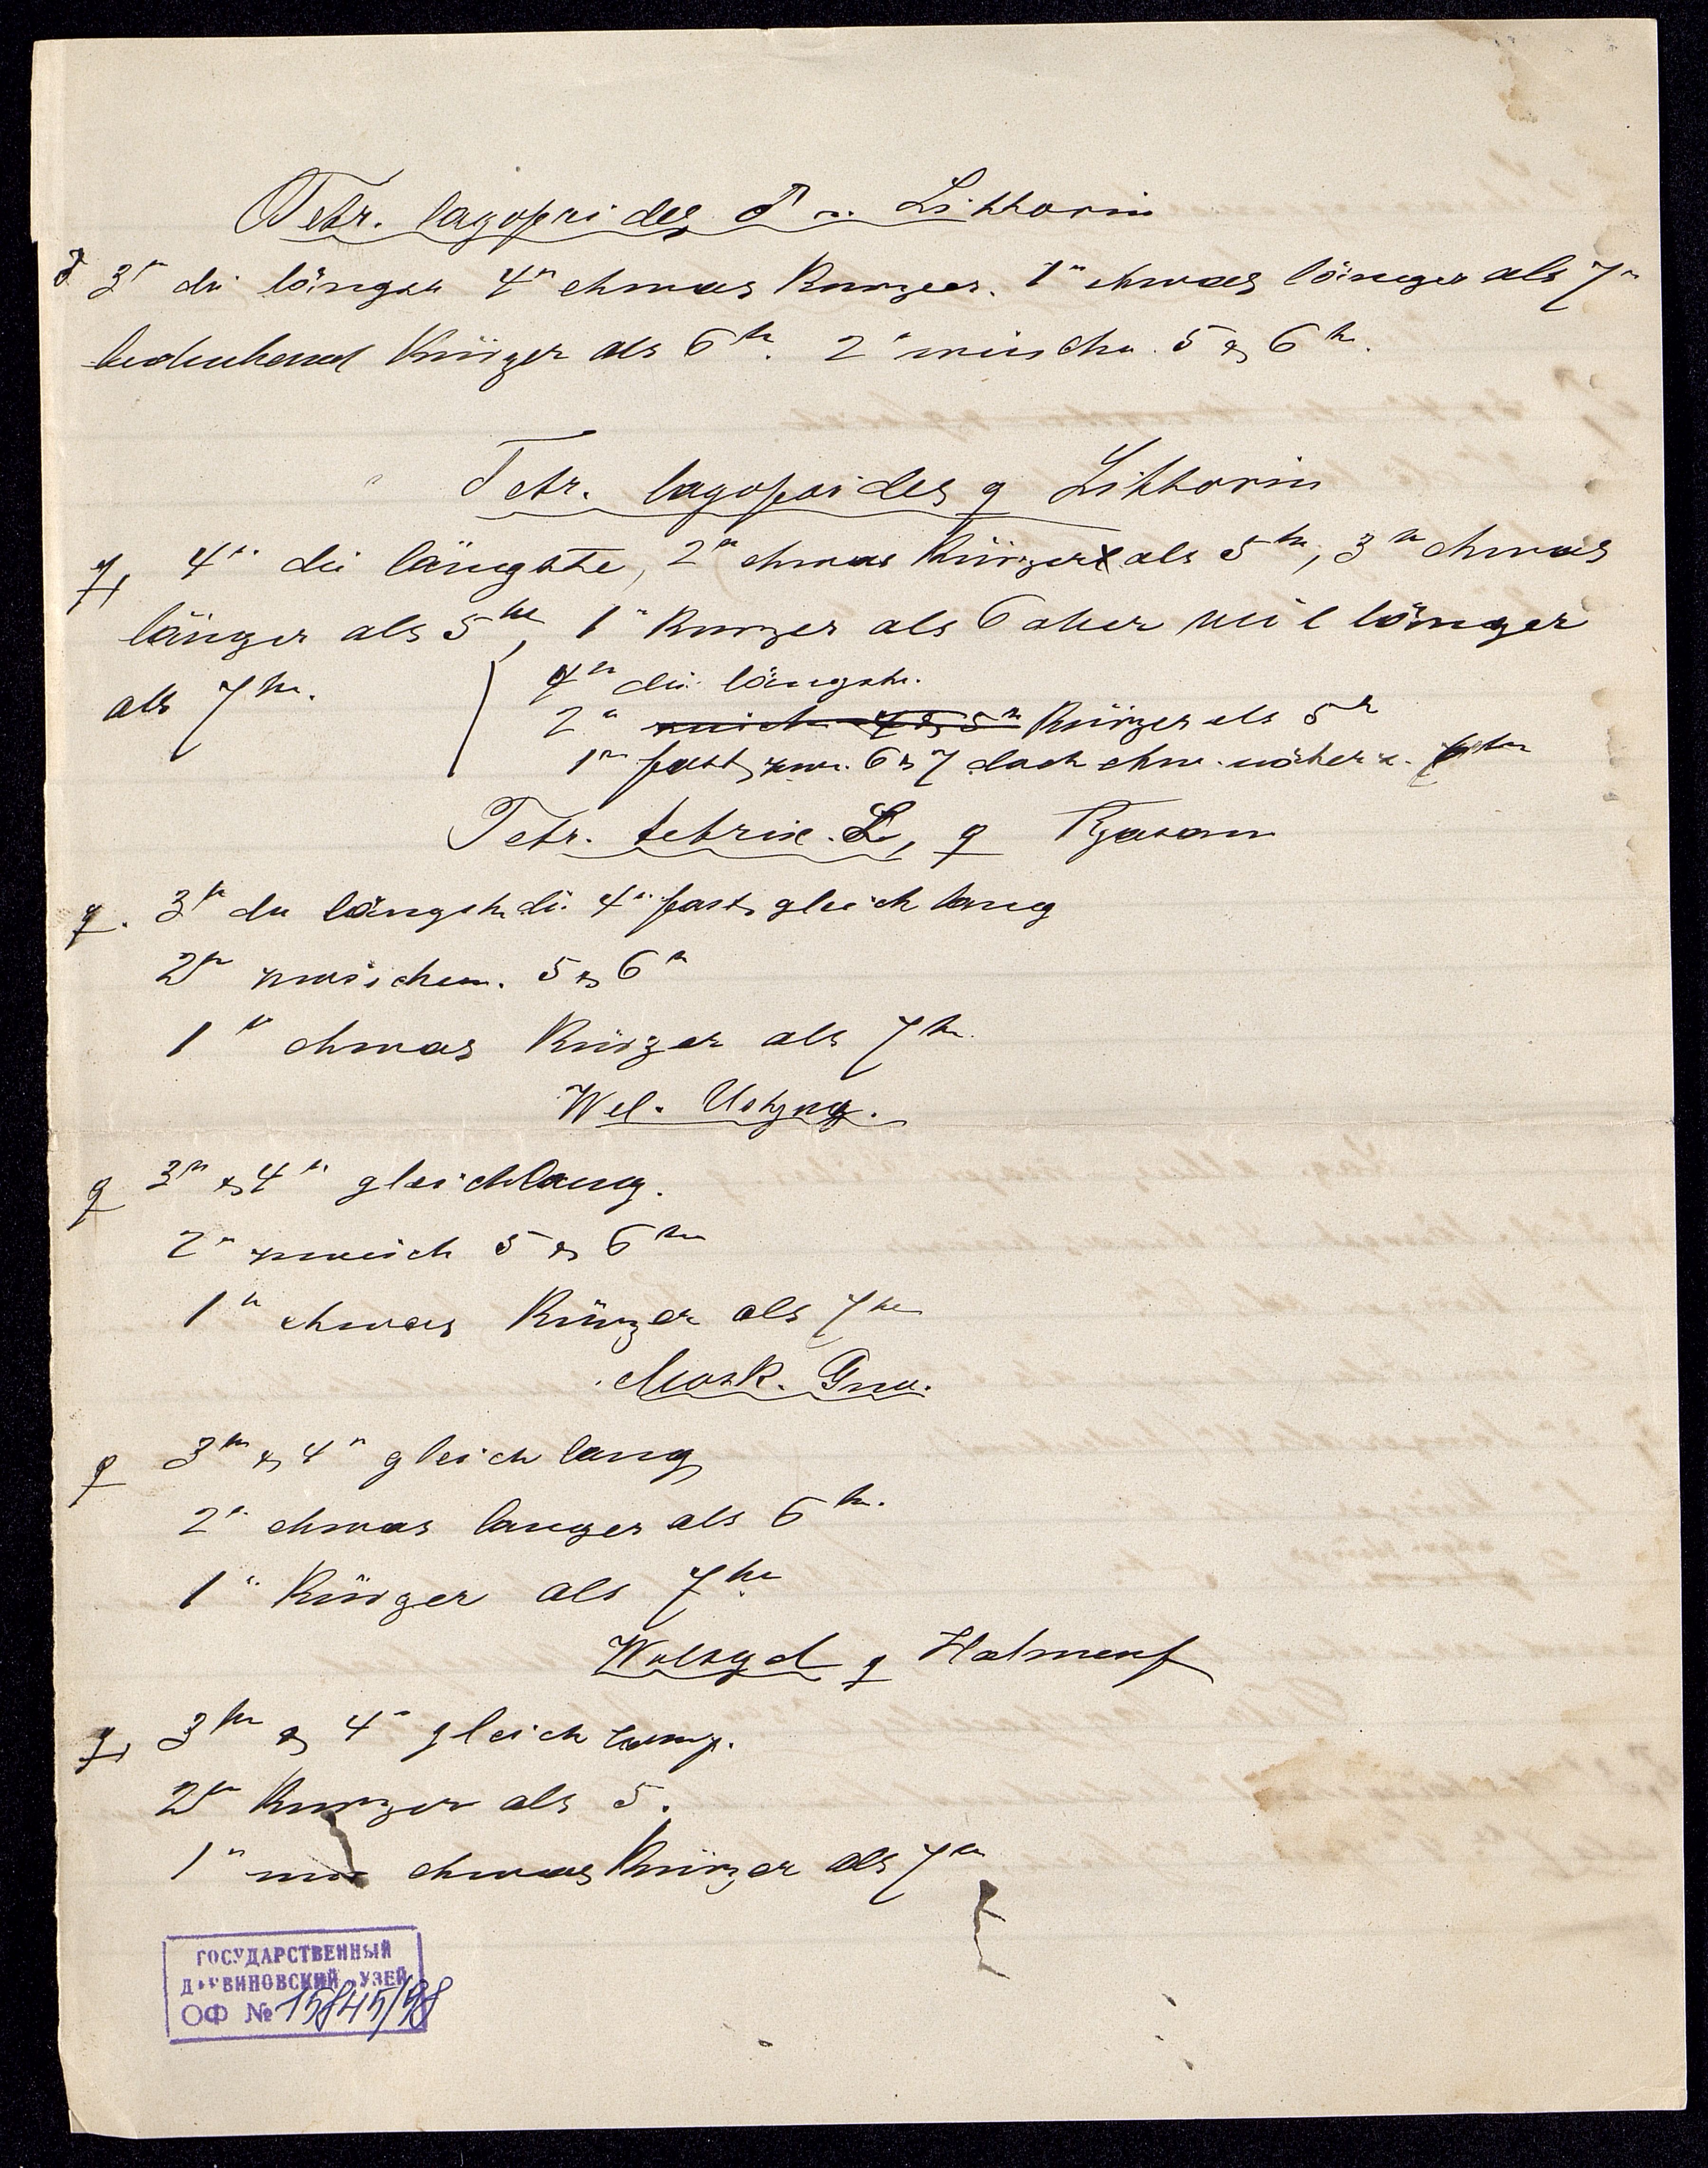 Tetr. lagopoides ♂ v. Littorin
♂ 3te die längste 4te etwas kurzer. 1te etwas länger als 7te
bedeutend kürzer als 6te. 2te zwischn. 5 & 6te.
Tetr. lagopoides ♀ Littorin
♀, 4te die längste, 2te etwas kürzer als 5te, 3te etwas
länger als 5te, 1te kurzer als 6 aber viel länger
als 7te.
4te die längste.
2te kürzer als 5te
1te fast zw. 6 & 7 doch etw. näher z.
Tetr. tetrix. L, ♀ Rjasan
♀. 3te die längste die 4te fast gleich lang
2te zwischen. 5 & 6te
1te etwas kürzer als 7te.
Wel. Ustjug.
♀ 3te & 4te gleichlang.
2te zwisch 5 & 6te
1te etwas kürzer als 7te
Mosk. Gouv.
♀ 3te & 4te gleich lang
2te etwas langer als 6te.
1te kürzer als 7te
♀
♀, 3te & 4te gleich lang.
2te kurzer als 5.
1te nur etwas kürzer als 7te
ГОСУДАРСТВЕННЫЙ
ДАРВИНОВСКИЙ МУЗЕЙ
ОФ № 15845/98